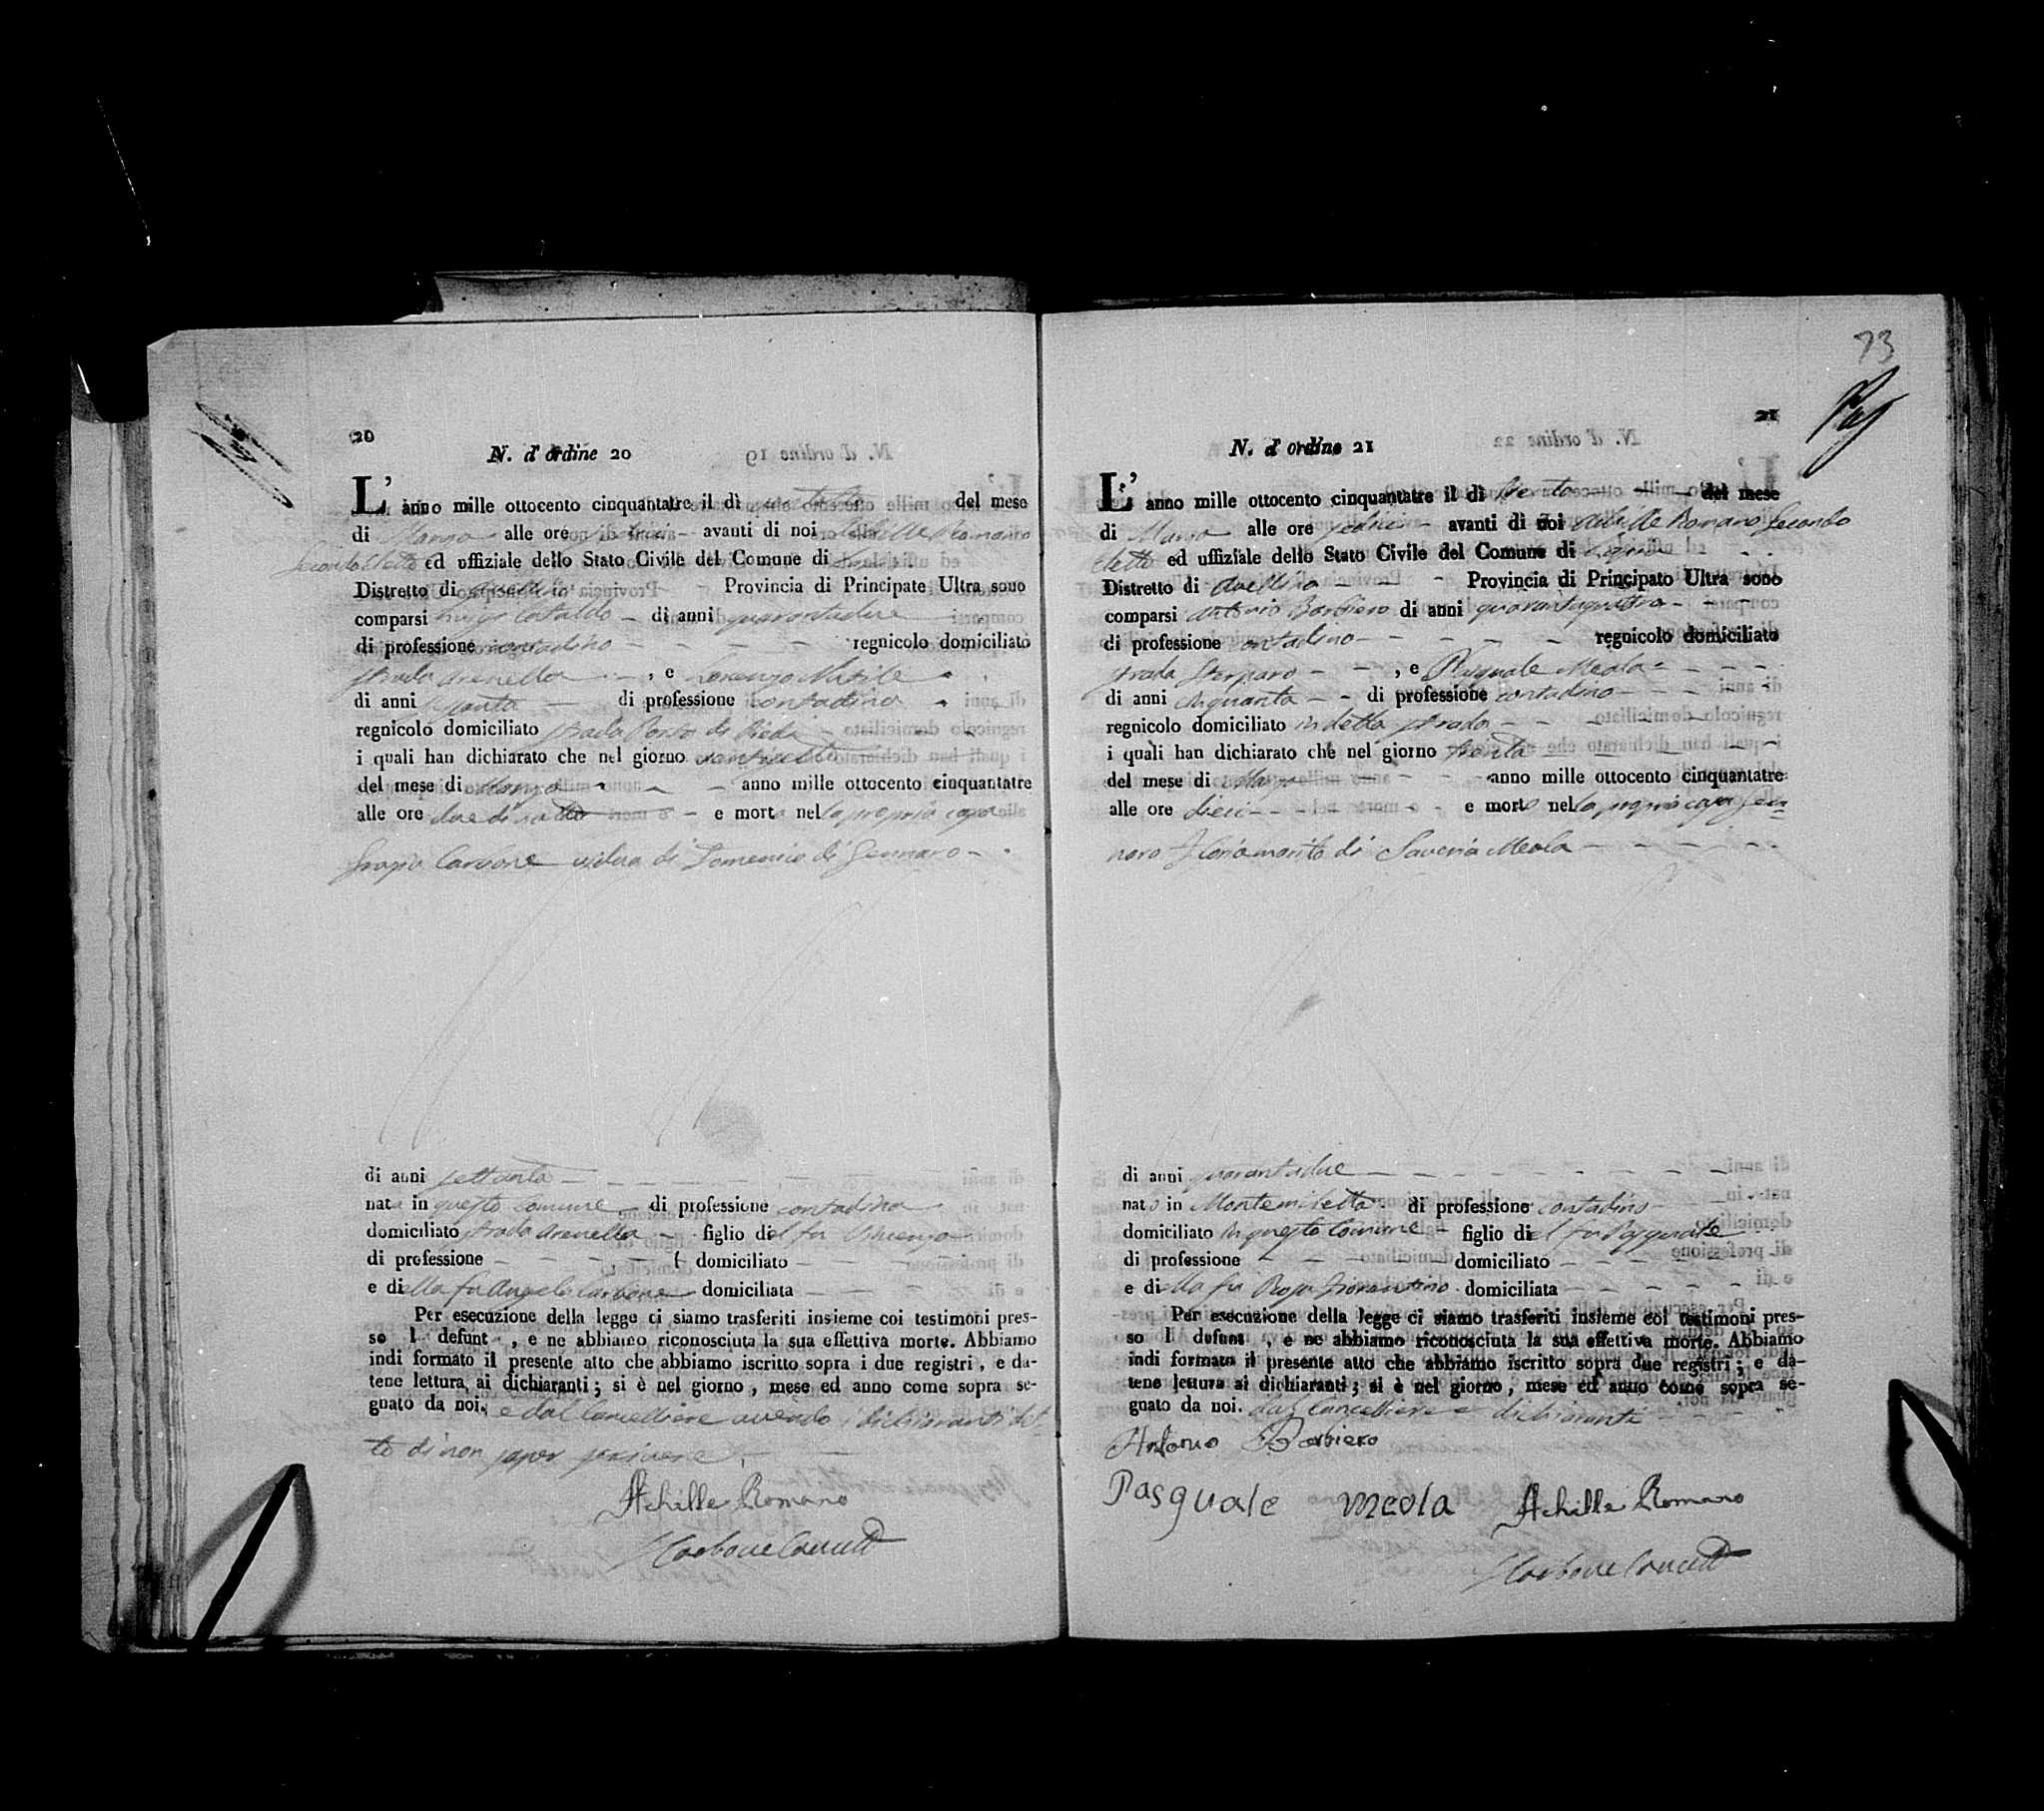 20
N. d' ordine 20
L' anno mille ottocento cinquantatre il dì ventotto del mese
di Marzo alle ore avanti di noi Achille Romano
Secondo Eletto ed uffiziale dello Stato Civile del Comune di
Distretto di Avellino Provincia di Principate Ultra sono
comparsi Luigi Cataldo di anni quarantadue
di professione contadino regnicolo domiciliato
strada Arenella , e Lorenzo
di anni di professione contadino
regnicolo domiciliato strada
i quali han dichiarato che nel giorno ventisette
del mese di Marzo anno mille ottocento cinquantatre
alle ore due di notte e mort a nella propria casa
Grazia Carbone vidua di Domenico di Gennaro
di anni settanta
nata in questo Comune di professione contadina
domiciliato strada Arenella figlio del fu
di professione domiciliato
e della fu Angela Carbone domiciliata
Per esecuzione della legge ci siamo trasferiti insieme coi testimoni pres-
so l defunt , e ne abbiamo riconosciuta la sua effettiva morte. Abbiamo
indi formato il presente atto che abbiamo iscritto sopra i due registri , e da-
tene lettura ai dichiaranti ; si è nel giorno , mese ed anno come sopra se-
gnato da noi. e dal Cancelliere avendo i dichiaranti det
to di non saper scrivere
Achille Romano
73
21
N. d' ordine 21
L' anno mille ottocento cinquantatre il dì trenta del mese
di Marzo alle ore avanti di noi Achille Romano Secondo
Eletto ed uffiziale dello Stato Civile del Comune di
Distretto di Avellino Provincia di Principato Ultra sono
comparsi Antonio Barbiero di anni quarantaquattro
di professione contadino regnicolo domiciliato
strada , e Pasquale Meola
di anni cinquanta di professione contadino
regnicolo domiciliato in detta strada
i quali han dichiarato che nel giorno trenta
del mese di Marzo anno mille ottocento cinquantatre
alle ore dieci e morto nella propria casa Gen
naro marito di Saveria Meola
di anni quarantadue
nato in Montemiletto di professione contadino
domiciliato in questo Comune figlio del fu Pasquale
di professione domiciliato
e della fu Rosa Fiorentino domiciliata
Per esecuzione della legge ci siamo trasferiti insieme coi testimoni pres-
so l defunt , e ne abbiamo riconosciuta la sua effettiva morte. Abbiamo
indi formato il presente atto che abbiamo iscritto sopra due registri ; e da-
tene lettura ai dichiaranti ; si è nel giorno , mese ed anno come sopra se-
gnato da noi. dal Cancelliere e dichiaranti
Antonio Barbiero
Pasquale Meola Achille Romano